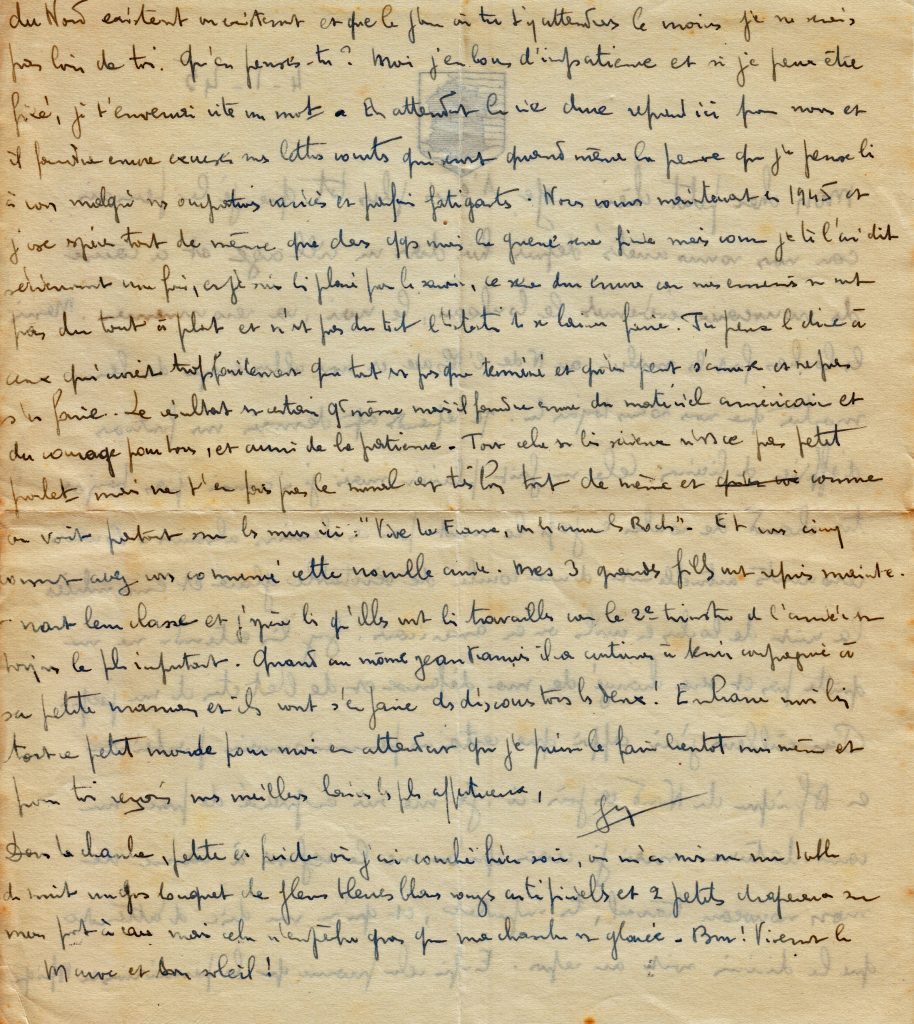 du Nord existent ou existeront et que le jour où tu t'y attendras le moins je ne serai
pas loin de toi. Qu'en penses-tu? Moi j'en bous d'impatience et si je peux être
fixé, je t'enverrai vite un mot. En attendant la vie dure reprend ici pour nous et
il faudra encore excuser mes lettres courtes qui sont quand même la preuve que je pense
à vous malgré nos occupations variées et parfois fatigants. Nous voici maintenant en 1945 et
j'ose espérer tout de même que dans qqs mois la guerre sera finie mais comme je te l'ai dit
sérieusement une fois, et je suis placé pour le savoir, ce sera dur encore car nos ennemis ne sont
pas du tout à plat et n'ont pas du tout l'intention de se laisser faire. Tu peux l dire à
ceux qui croient trop facilement que tout est presque terminé et qu'on peut s'amuser et ne pas
s'en faire. Le résultat est certain qd même mais il faudra encore du matériel américain et
du courage pour tous, et aussi de la patience. Tout cela est bien sérieux n'est ce pas petit
poulet mais ne t'en fais pas le moral est très bon tout de même et comme
on voit partout sur les murs ici: "Vive la France, on aura les Boches". Et vous cinq
comment avez vous commencé cette nouvelle année. Mes 3 grandes filles ont repris mainte-
nant leur classe et j'espère qu'elles vont travailler car le 2e trimestre de l'année est
toujours le plus important. Quand au môme Jean François il a continué à tenir compagnie à
sa petite maman et ils vont s'en faire des discours tous les deux! Embrasse moi bien
tout ce petit monde pour moi en attendant que je puisse le faire bientôt moi même et
pour toi reçois mes meilleurs baisers les plus affectueux,
Dans la chambre, petite et froide où j'ai couché hier soir, on m'a mis sur ma table
de nuit un gros bouquet de fleurs bleues blanc rouges artificiels et 2 petits drapeaux sur
mon pot à eau mais cela n'empêche pas que ma chambre est glacée. Brrr! Vivement le
Maroc et son soleil!